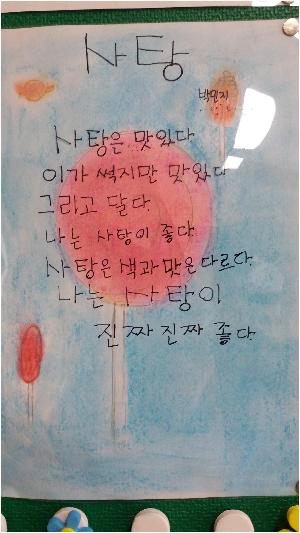 사탕
박민지
사탕은 맛있다
이가 썩지만 맛있다
그리고 달다.
나는 사탕이 좋다.
사탕은 색과 맛은 다르다.
나는 사탕이
진짜 진짜 좋다.